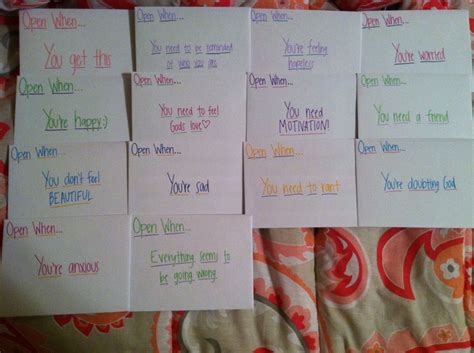 Open When...
You get this
Open When...
You need to be reminded
of who you are
Open When...
You're feeling
hopeless
Open When...
You're worried
Open When...
You're happy:)
Open When...
You need to feel
Gods love♡
Open When...
You need
MOTIVATION!
Open When...
You need a friend
Open When...
You don't feel
BEAUTIFUL
Open When...
You're sad
Open When...
You need to rant
Open When...
You're doubting God
Open When...
You're anxious
Open When...
Everything seems to
be going wrong